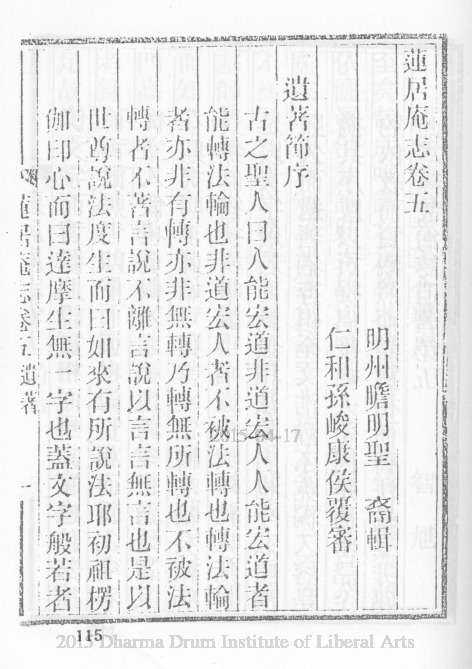 蓮居庵志卷五
明州瞻明聖　裔輯
仁和孫峻康侯覆審
遺著節序
古之聖人曰人能宏道非道宏人人能宏道者
能轉法輪也非道宏人者不被法轉也轉法輪
者亦非有轉亦非無轉乃轉無所轉也不被法
轉者不著言說不離言說以言言無言也是以
世尊說法度生而曰如來有所說法耶初祖楞
伽印心而曰達摩生無一字也蓋文字般若者
蓮居庵志卷五遺著
一
2015-04-17
115
2015 Dharma Drum Institute of Liberal Arts